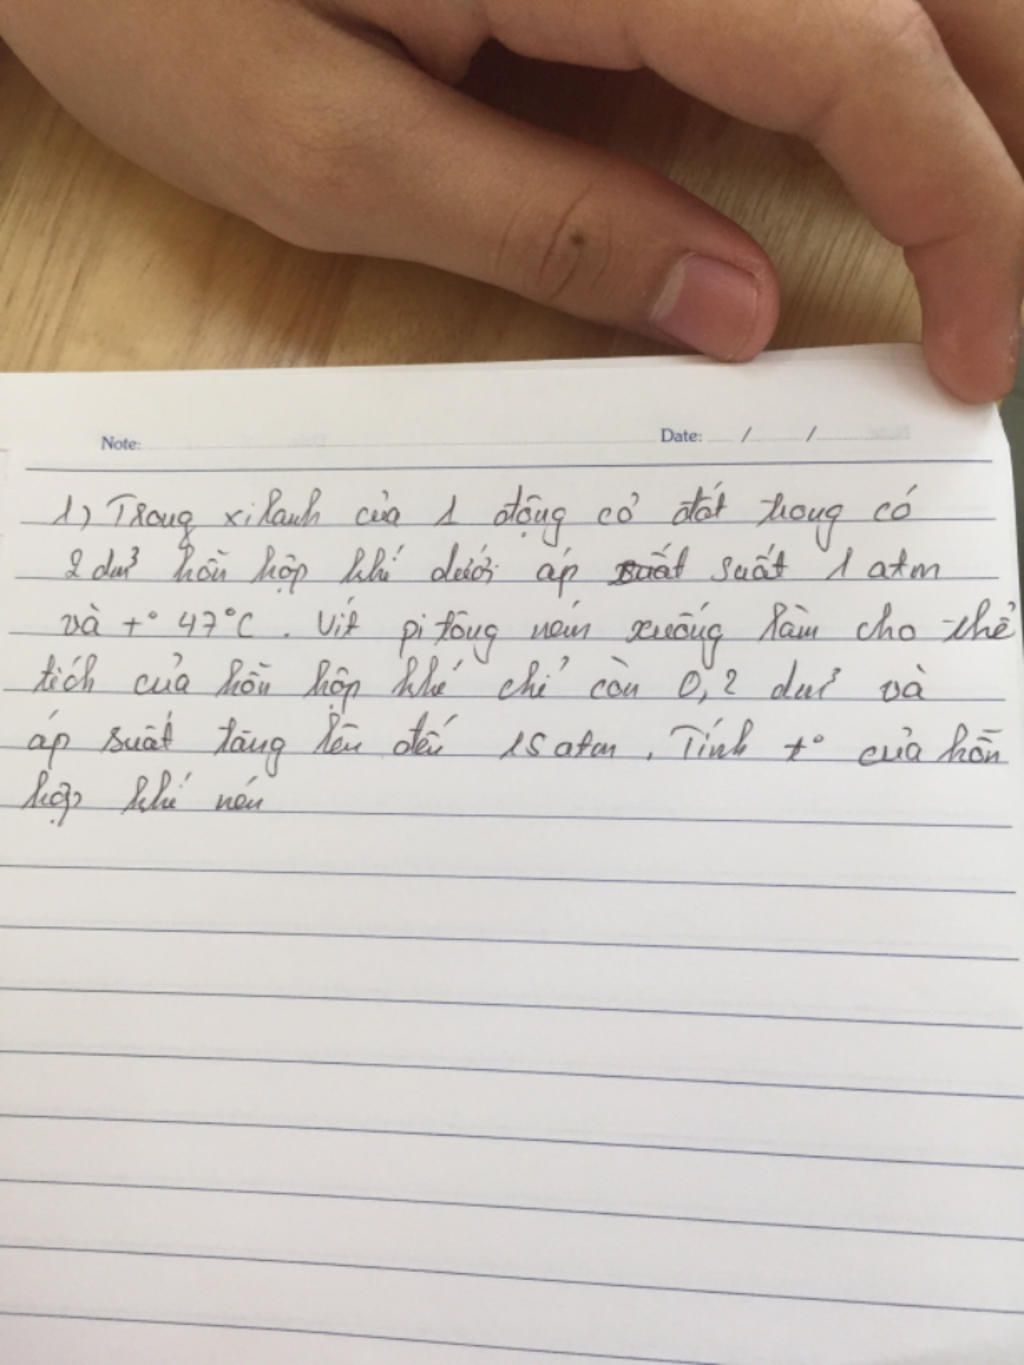 Note: Date: / /
1) Trong xilanh của 1 động cơ đốt trong có
2 dm³ hỗn hợp khí dưới áp suất suất 1 atm
và t° 47°C. Vít pi tông nén xuống làm cho thể
tích của hỗn hợp khí chỉ còn 0,2 dm³ và
áp suất tăng lên đến 15 atm. Tính t° của hỗn
hợp khí nén